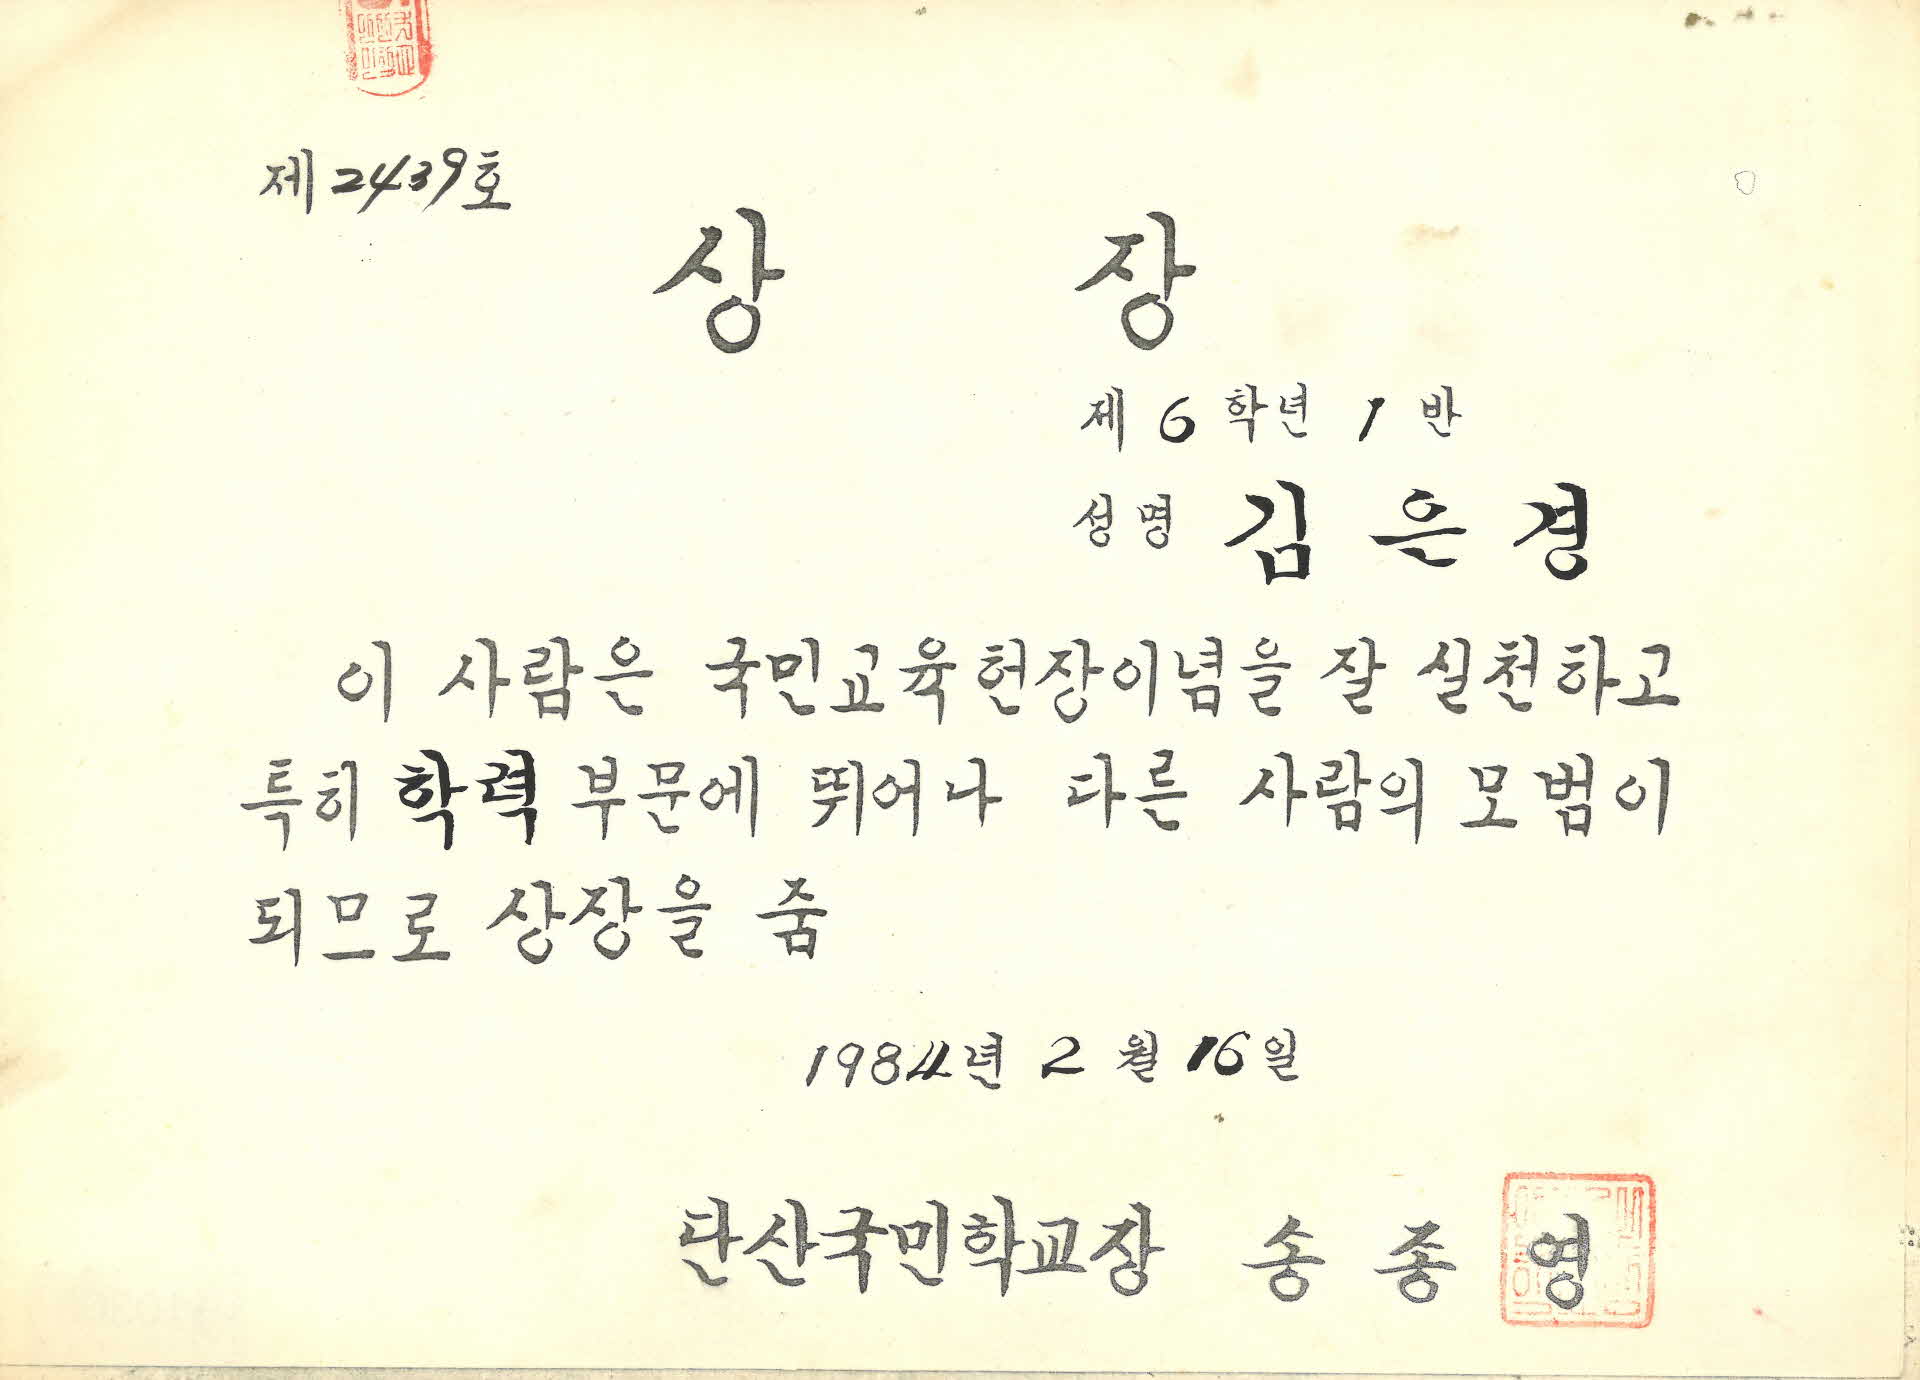 제2439호
상 장
제 6 학년 1 반
성명 김 은 경
이 사람은 국민교육헌장이념을 잘 실천하고
특히 학력 부문에 뛰어나 다른 사람의 모범이
되므로 상장을 줌
1984년 2 월 16일
단산국민학교장 송 종 영